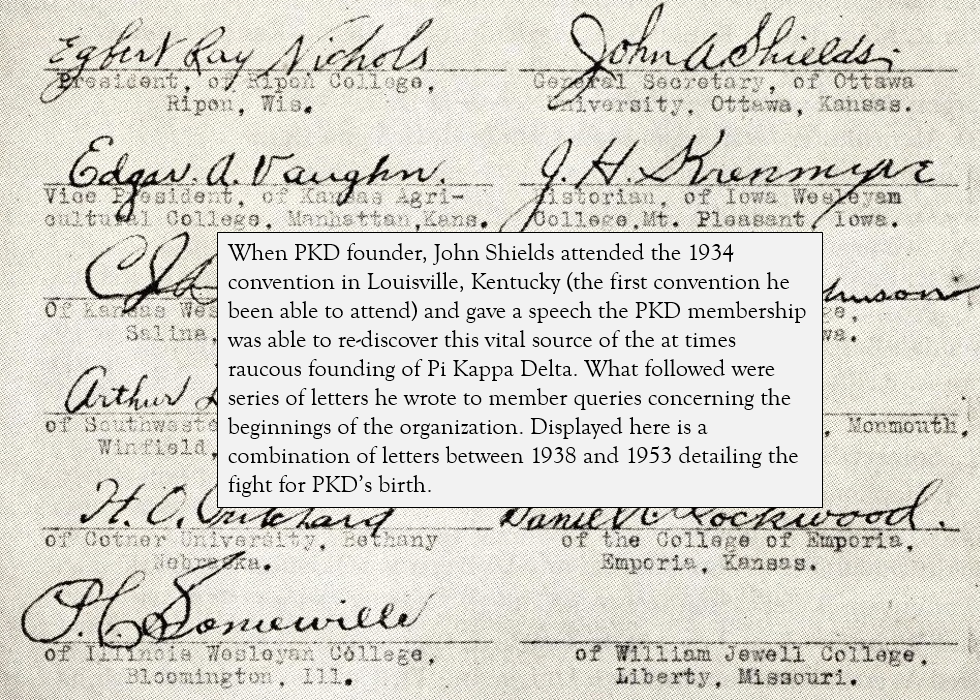 Egbert Ray Nichols
President, of Ripon College,
Ripon, Wis.
John A Shields
General Secretary, of Ottawa
University, Ottawa, Kansas.
Edgar A. Vaughn.
Vice President, of Kansas Agri-
cultural College, Manhattan,Kans.
J. H. Krenmyre
Historian, of Iowa Wesleyam
College,Mt. Pleasant, Iowa.
When PKD founder, John Shields attended the 1934
convention in Louisville, Kentucky (the first convention he
been able to attend) and gave a speech the PKD membership
was able to re-discover this vital source of the at times
raucous founding of Pi Kappa Delta. What followed were
series of letters he wrote to member queries concerning the
beginnings of the organization. Displayed here is a
combination of letters between 1938 and 1953 detailing the
fight for PKD's birth.
Of Kansas Wes
Salina,
Arthur
of Southweste
Winfield,
, Monmouth,
H. O. Pritchard
of Cotner University, Bethany
Nebraska.
Daniel C Rockwood.
of the College of Emporia,
Emporia, Kansas.
P. C. Somerville
of Illinois Wesleyan College,
Bloomington, Ill.
of William Jewell College,
Liberty, Missouri.